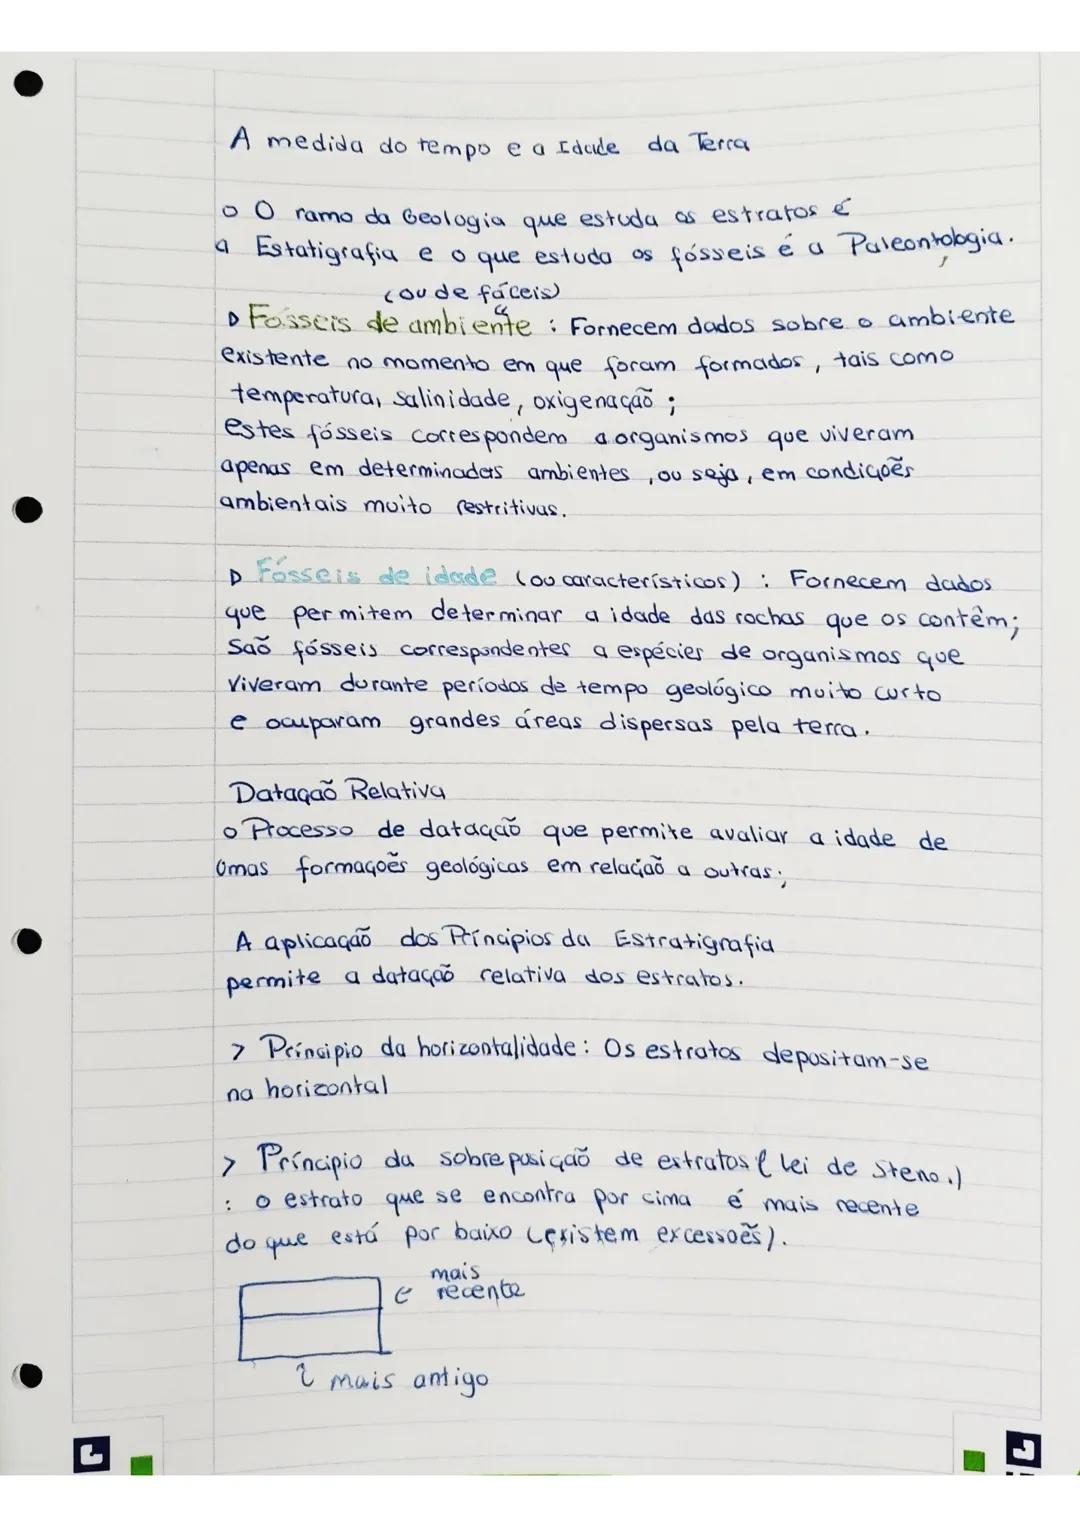 A medida do tempo e a Idade da Terra
o O ramo da Geologia que estuda os estratos é
a Estatigrafia e o que estuda os fósseis é a Paleontologia.
(ou de fáceis)
▷ Fósseis de ambiente : Fornecem dados sobre o ambiente
existente no momento em que foram formados, tais como
temperatura, salinidade, oxigenação ;
estes fósseis correspondem a organismos que viveram
apenas em determinados ambientes, ou seja, em condições
ambientais muito restritivas.
▷ Fósseis de idade (ou característicos) : Fornecem dados
que permitem determinar a idade das rochas que os contêm;
São fósseis correspondentes a espécies de organismos que
viveram durante períodos de tempo geológico muito curto
e ocuparam grandes áreas dispersas pela terra.
Datação Relativa
o Processo de datação que permite avaliar a idade de
Umas formações geológicas em relação a outras;
A aplicação dos Príncipios da Estratigrafia
permite a datação relativa dos estratos.
> Príncipio da horizontalidade: Os estratos depositam-se
na horizontal
> Príncipio da sobreposição de estratos ( Lei de Steno.)
: o estrato que se encontra por cima é mais recente
do que está por baixo (existem excessões).
mais
recente
mais antigo